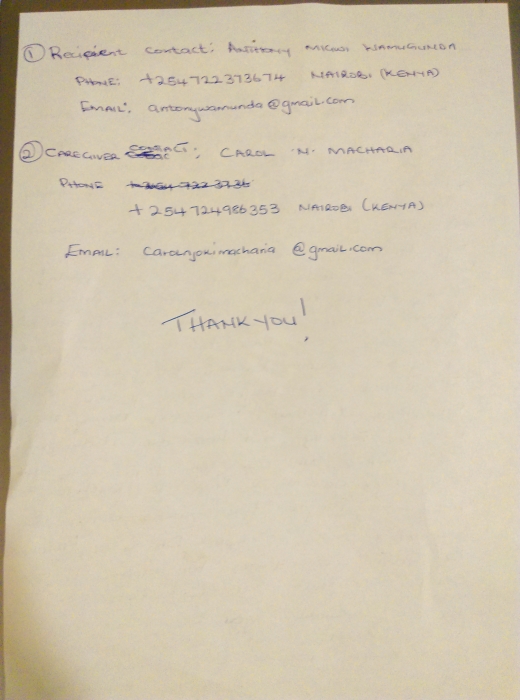 ① Recipient contact: Anthony Migwi Wamugunda
PHONE: +254722373674 NAIROBI (KENYA)
EMAIL: antonywamunda@gmail.com
② CAREGIVER CONTACT: CAROL N. MACHARIA
PHONE
+254724986353 NAIROBI (KENYA)
EMAIL: carolnjokimacharia @gmail.com
THANK YOU!